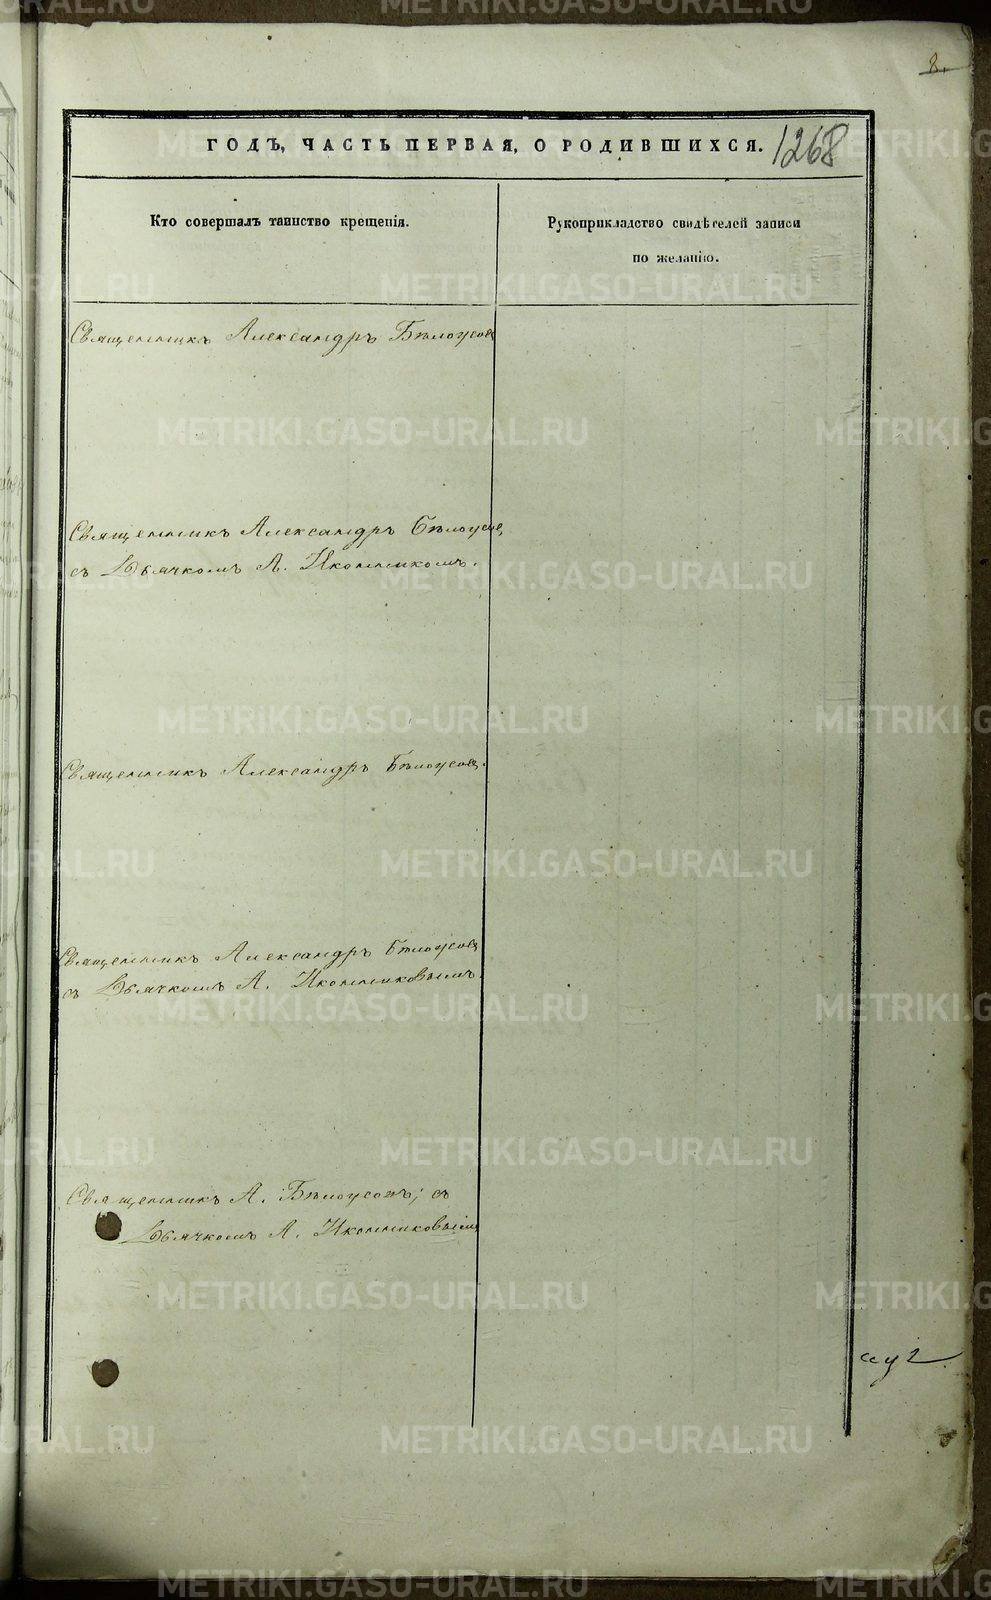 8.
ГОДЪ, ЧАСТЬ ПЕРВАЯ, О РОДИВШИХСЯ.
1268
Кто совершалъ таинство крещенія.
Рукоприкладство свидѣтелей записи
по желанію.
Священникъ Александръ Бѣлоусов
Священникъ Александръ Бѣлоусов,
съ Дьячкомъ А. Иконникомъ.
Священникъ Александръ Бѣлоусов.
Священникъ Александръ Бѣлоусов
съ Дьячкомъ А. Иконниковымъ.
Священникъ А. Бѣлоусовъ; съ
Дьячкомъ А. Иконниковымъ
METRIKI.GASO-URAL.RU